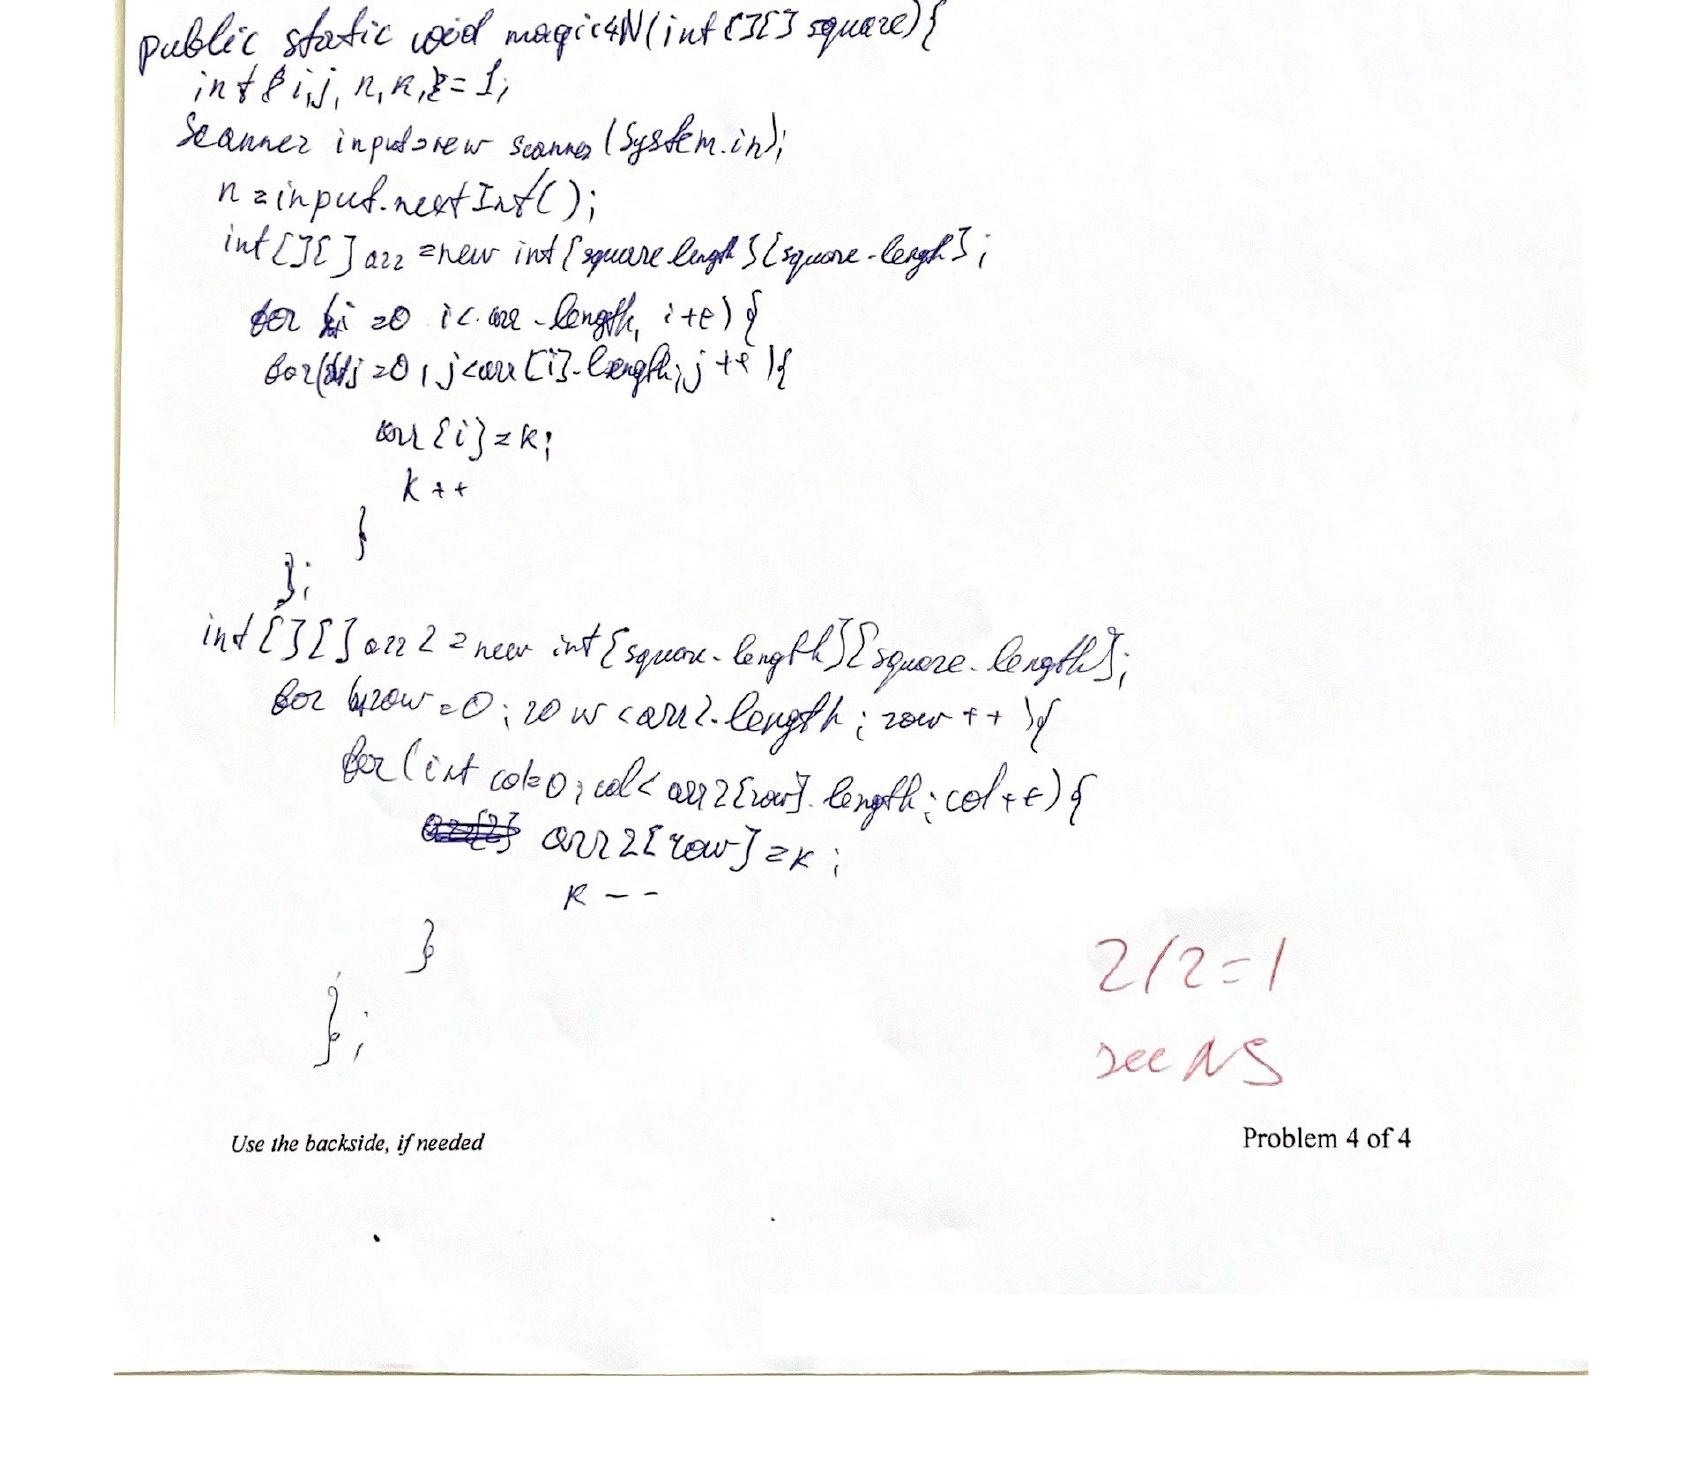 public static void magic4N(int[][] square){
int i,j, n, k, = 1;
Scanner input=new scanner(System.in);
n = input.nextInt();
int[][] arr = new int[square lengh][square.lengh];
for (i = 0 i < arr.length, i++){
for(j = 0, j<arr[i].length;j++){
arr[i] = k;
k++
}
};
int[][] arr2 = new int[square.length][square.length];
for (row = 0; row < arr2.length; row++){
for(int col=0; col< arr2[row].length; col++){
arr2[row] = k;
k--
}
};
2/2=1
see NS
Use the backside, if needed
Problem 4 of 4